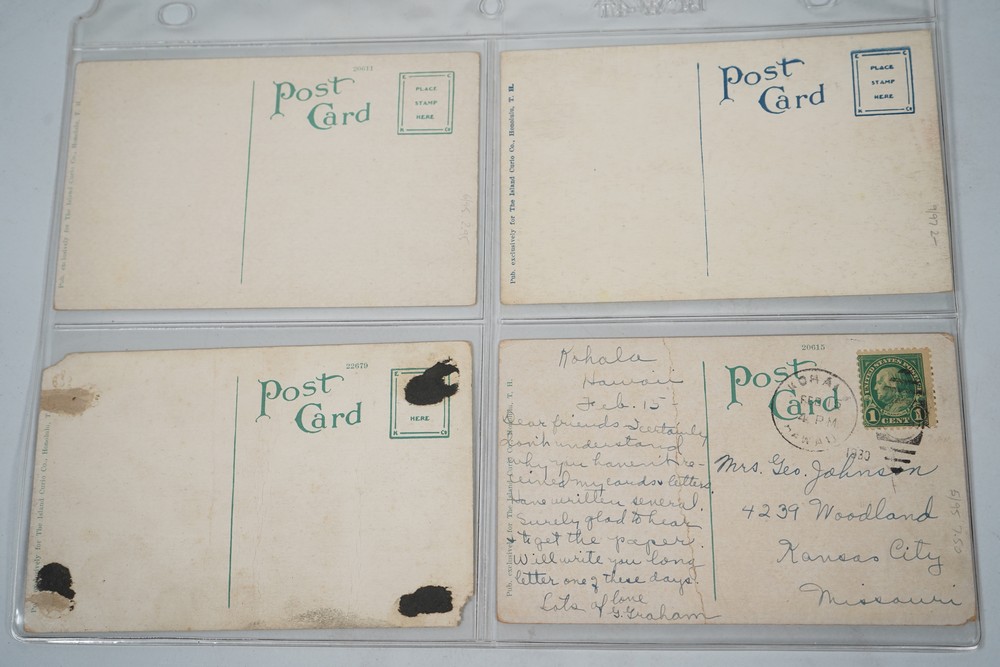 20613
Post
Card
PLACE
STAMP
HERE
Pub. exclusively for The Island Curio Co., Honolulu, T. H.
Post
Card
PLACE
STAMP
HERE
Pub. exclusively for The Island Curio Co., Honolulu, T. H.
22679
Post
Card
HERE
for The Island Curio Co., Honolulu, T. H.
20615
Post
Card
KOHALA
FEB
4 PM
HAWAII
1930
UNITED STATES POSTAGE
1 CENT 1
Pub. exclusively for The Island Curio Co., Honolulu, T. H.
Kohala
Hawaii
Feb. 15
Dear friends I certainly
don't understand
why you haven't re-
ceived my cards & letters.
Have written several.
Surely glad to hear
& to get the paper.
Will write you long
letter one of these days.
Lots of love
G. Graham
Mrs. Geo. Johnson
4239 Woodland
Kansas City
Missouri